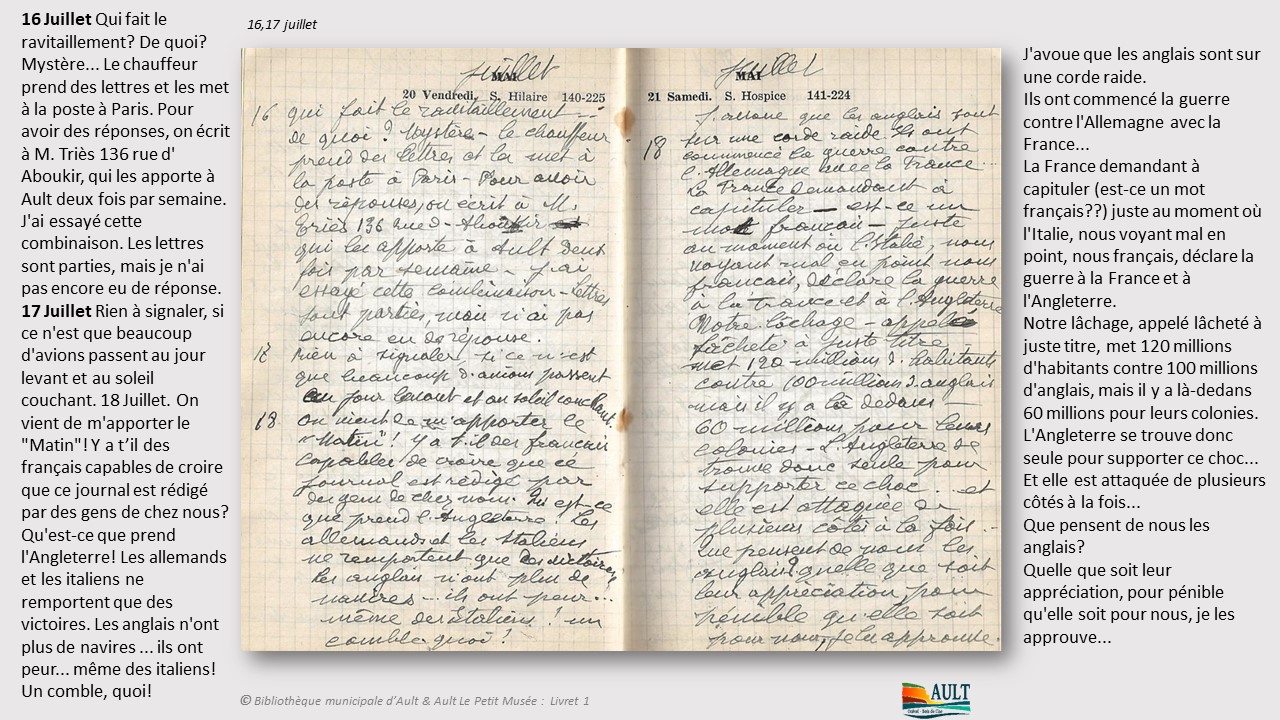 16 Juillet Qui fait le
ravitaillement? De quoi?
Mystère... Le chauffeur
prend des lettres et les met
à la poste à Paris. Pour
avoir des réponses, on écrit
à M. Triès 136 rue d'
Aboukir, qui les apporte à
Ault deux fois par semaine.
J'ai essayé cette
combinaison. Les lettres
sont parties, mais je n'ai
pas encore eu de réponse.
17 Juillet Rien à signaler, si
ce n'est que beaucoup
d'avions passent au jour
levant et au soleil
couchant. 18 Juillet. On
vient de m'apporter le
"Matin"! Y a t’il des
français capables de croire
que ce journal est rédigé
par des gens de chez nous?
Qu'est-ce que prend
l'Angleterre! Les allemands
et les italiens ne
remportent que des
victoires. Les anglais n'ont
plus de navires ... ils ont
peur... même des italiens!
Un comble, quoi!
16,17 juillet
juillet
MAI
20 Vendredi. S. Hilaire 140-225
16 qui fait le ravitaillement --
de quoi? Mystère - le chauffeur
prend des lettres et les met à
la poste à Paris - Pour avoir
des réponses, on écrit à M.
Triès 136 rue d'Aboukir
qui les apporte à Ault deux
fois par semaine - j'ai
essayé cette combinaison - lettres
sont parties, mais n'ai pas
encore eu de réponse.
17 Rien à signaler, si ce n'est
que beaucoup d'avions passent
au jour levant et au soleil couchant.
18 On vient de m'apporter le
"Matin"! Y a t-il des français
capables de croire que ce
journal est rédigé par
des gens de chez nous. Qu'est-ce
que prend l'Angleterre! Les
allemands et les Italiens
ne remportent que des victoires,
les anglais n'ont plus de
navires... ils ont peur...
même des Italiens! un
comble quoi!
juillet
MAI
21 Samedi. S. Hospice 141-224
J'avoue que les anglais sont
18 sur une corde raide. Ils ont
commencé la guerre contre
l'Allemagne avec la France...
La France demandant à
capituler — est-ce un
mot français — juste
au moment où l'Italie, nous
voyant mal en point nous
français, déclare la guerre
à la France et à l'Angleterre
Notre lâchage - appelé
lâcheté à juste titre -
met 120 millions d'habitants
contre 100 millions d'anglais
mais il y a là dedans —
60 millions pour leurs
colonies - L'Angleterre se
trouve donc seule pour
supporter ce choc... et
elle est attaquée de
plusieurs côtés à la fois...
Que pensent de nous les
anglais? quelle que soit
leur appréciation, pour
pénible qu'elle soit
pour nous, je les approuve.
J'avoue que les anglais sont sur
une corde raide.
Ils ont commencé la guerre
contre l'Allemagne avec la
France...
La France demandant à
capituler (est-ce un mot
français??) juste au moment où
l'Italie, nous voyant mal en
point, nous français, déclare la
guerre à la France et à
l'Angleterre.
Notre lâchage, appelé lâcheté à
juste titre, met 120 millions
d'habitants contre 100 millions
d'anglais, mais il y a là-dedans
60 millions pour leurs colonies.
L'Angleterre se trouve donc
seule pour supporter ce choc...
Et elle est attaquée de plusieurs
côtés à la fois...
Que pensent de nous les
anglais?
Quelle que soit leur
appréciation, pour pénible
qu'elle soit pour nous, je les
approuve...
© Bibliothèque municipale d’Ault & Ault Le Petit Musée : Livret 1
AULT